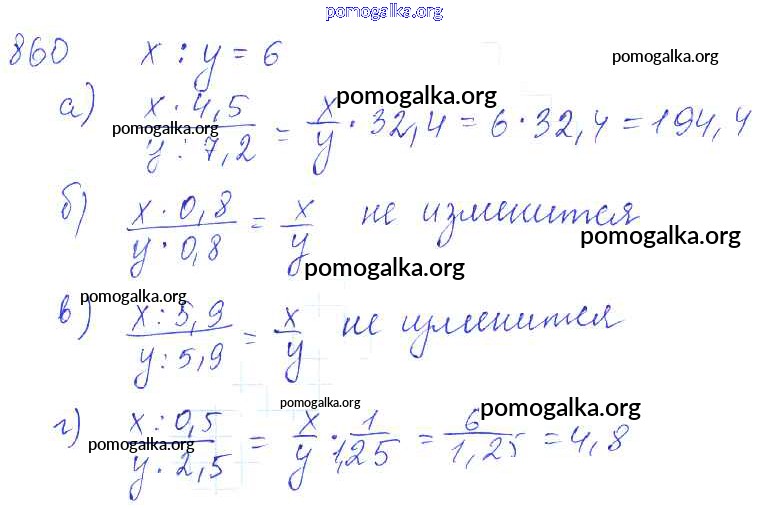 pomogalka.org
860 x : y = 6
pomogalka.org
а) x · 4,5 / y : 7,2 = x/y · 32,4 = 6 · 32,4 = 194,4
pomogalka.org
pomogalka.org
б) x · 0,8 / y · 0,8 = x/y не изменится
pomogalka.org
pomogalka.org
pomogalka.org
в) x : 5,9 / y : 5,9 = x/y не изменится
pomogalka.org
pomogalka.org
г) x : 0,5 / y · 2,5 = x/y · 1/1,25 = 6/1,25 = 4,8
pomogalka.org